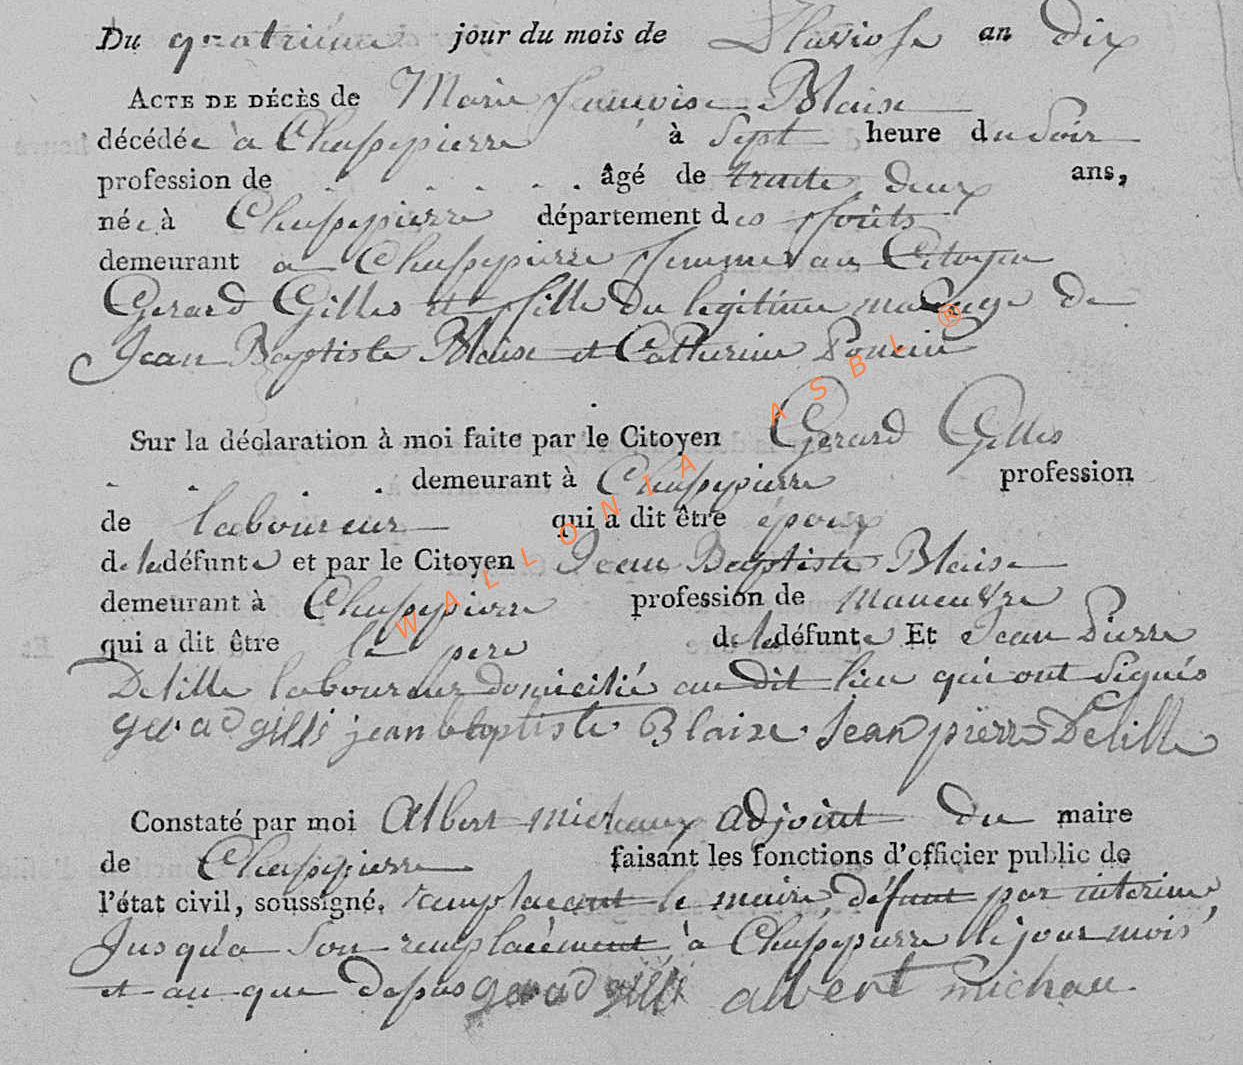 Du quatrième jour du mois de Pluviose an dix
ACTE DE DÉCÈS de Marie francoise Blaise
décédée à Chassepierre à Sept heure du Soir
profession de . . . . . âgé de trente deux ans,
née à Chassepierre département des fforêts
demeurant a Chassepierre ffemme au Citoyen
Gerard Gilles et ffille Du legitime mariage De
Jean Baptiste Blaise et Catherine Poncin
Sur la déclaration à moi faite par le Citoyen Gerard Gilles
. . . . demeurant à Chassepierre profession
de laboureur qui a dit être époux
de la défunte et par le Citoyen Jean Baptiste Blaise
demeurant à Chassepierre profession de maneuvre
qui a dit être le pere de la défunte Et Jean Pierre
Delille laboureur domicilié au dit lieu qui ont Signés
gerad gilli jean baptiste Blaise Jean pierre Delille
Constaté par moi Albert michaux adjoint Du maire
de Chassepierre faisant les fonctions d'officier public de
l'état civil, soussigné, remplacant le maire défunt par interime
Jusqu'a Son remplacement à Chassepierre le jour mois
et an que dessus gerad gilli albert michau.
WALLONIA ASBL ®